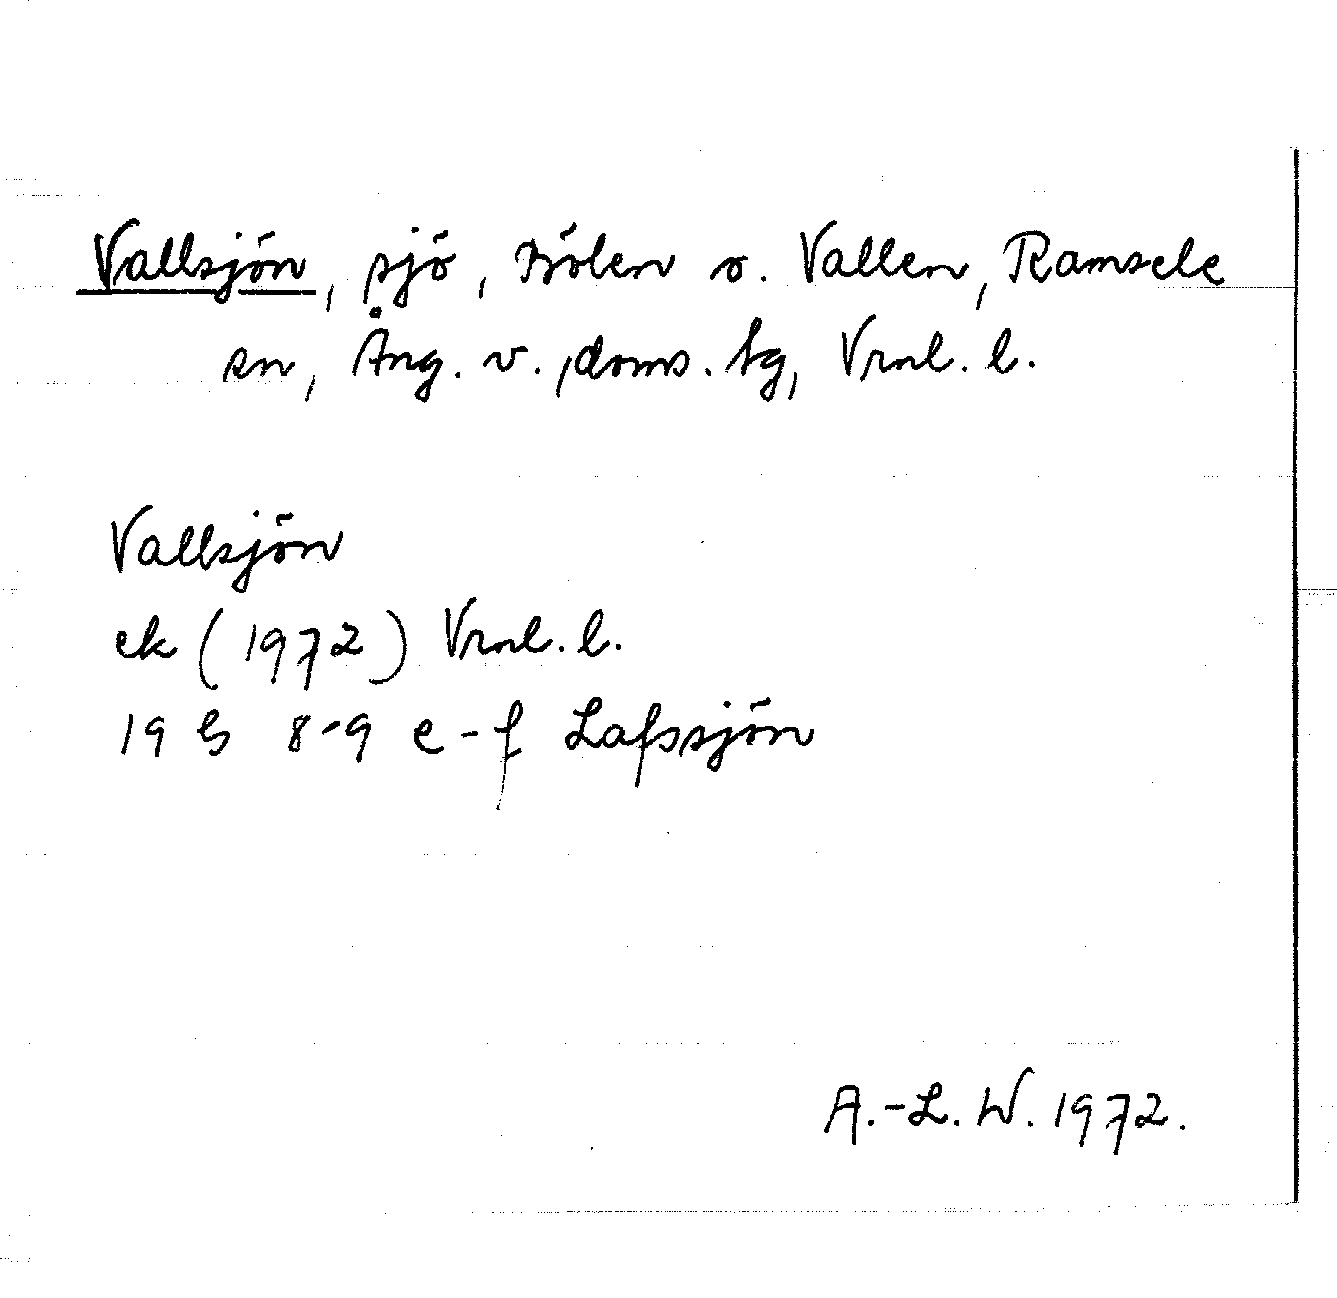 Vallsjön, sjö, Bölen o. Vallen, Ramsele
sn, Ång. v., doms. tg, Vrnl. l.
Vallsjön
ek (1972) Vrnl. l.
19 G 8-9 e-f Lafssjön
A.-L. W. 1972.